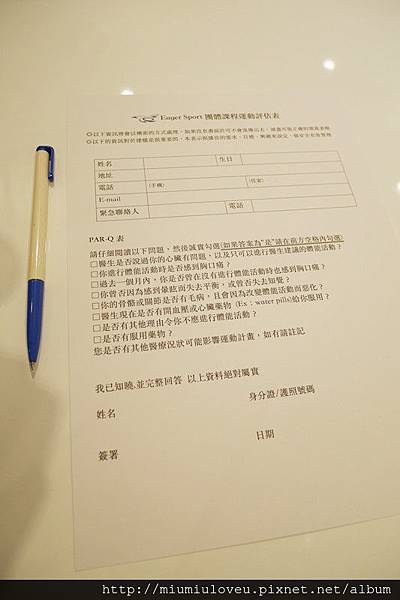 Eager Sport 團體課程運動評估表
◎以下資訊將會以機密的方式處理，如果沒有書面許可不會洩漏出去，請盡可能正確的填寫表格
◎以下的資料對於建檔是很重要的，本表示根據你的需求、目標、興趣來設定，給安全有效管理
姓名 生日
地址
電話 (手機) 電話 (住家)
E-mail
緊急聯絡人
PAR-Q 表
請仔細閱讀以下問題，然後誠實勾選(如果答案為"是"請在前方空格內勾選)
□醫生是否說過你的心臟有問題，以及只可以進行醫生建議的體能活動？
□你進行體能活動時是否感到胸口痛？
□過去一個月內，你是否曾在沒有進行體能活動時也感到胸口痛？
□你曾否因為感到暈眩而失去平衡，或曾否失去知覺？
□你的骨骼或關節是否有毛病，且會因為改變體能活動而惡化？
□醫生現在是否有開血壓或心臟藥物 (Ex：water pills)給你服用？
□是否有其他理由令你不應進行體能活動？
□是否有服用藥物？
您是否有其他醫療況狀可能影響運動計畫，如有請註記
我已知曉,並完整回答 以上資料絕對屬實
姓名 身分證/護照號碼
簽署 日期
http://miumiuloveu.pixnet.net/album